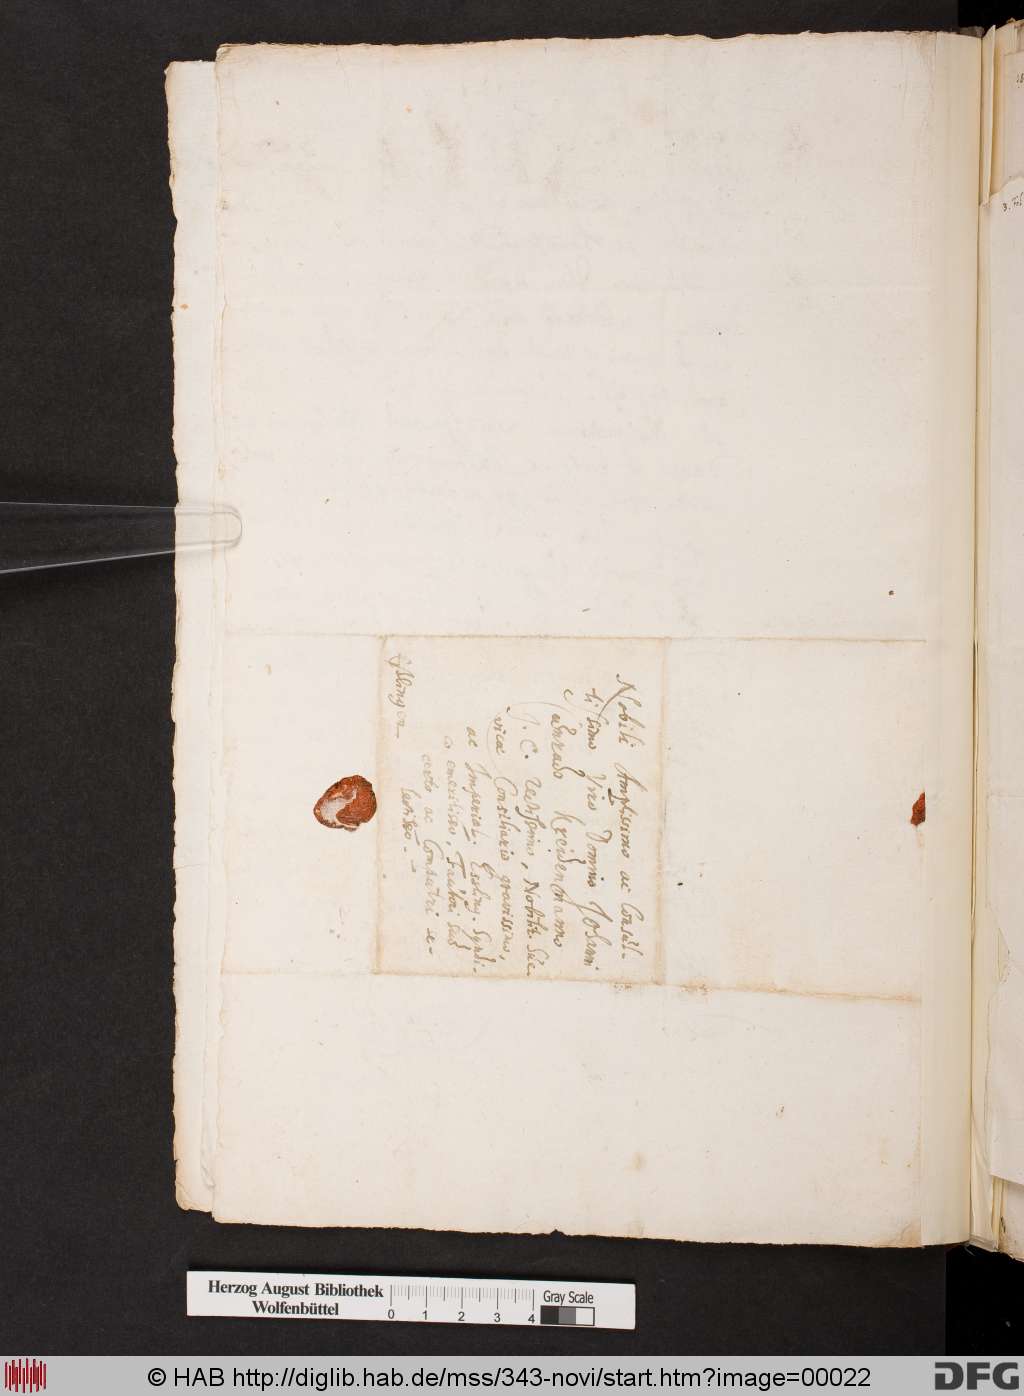 Nobili Amplissimo ac Consul-
tissimo Viro Domino Johanni
Conrado Kreidenmanno
J. C. Celissimo, Nobilit. Sue-
vicae Consiliario gravissimo,
ac Imperial. Essling. Syndi-
co emeritiss̄o, Fautori suo
certo ac Compatri se-
lectiss̄o. -
Eßlingen
3. Feb
Herzog August Bibliothek
Wolfenbüttel
0 1 2 3 4
Gray Scale
© HAB http://diglib.hab.de/mss/343-novi/start.htm?image=00022
DFG